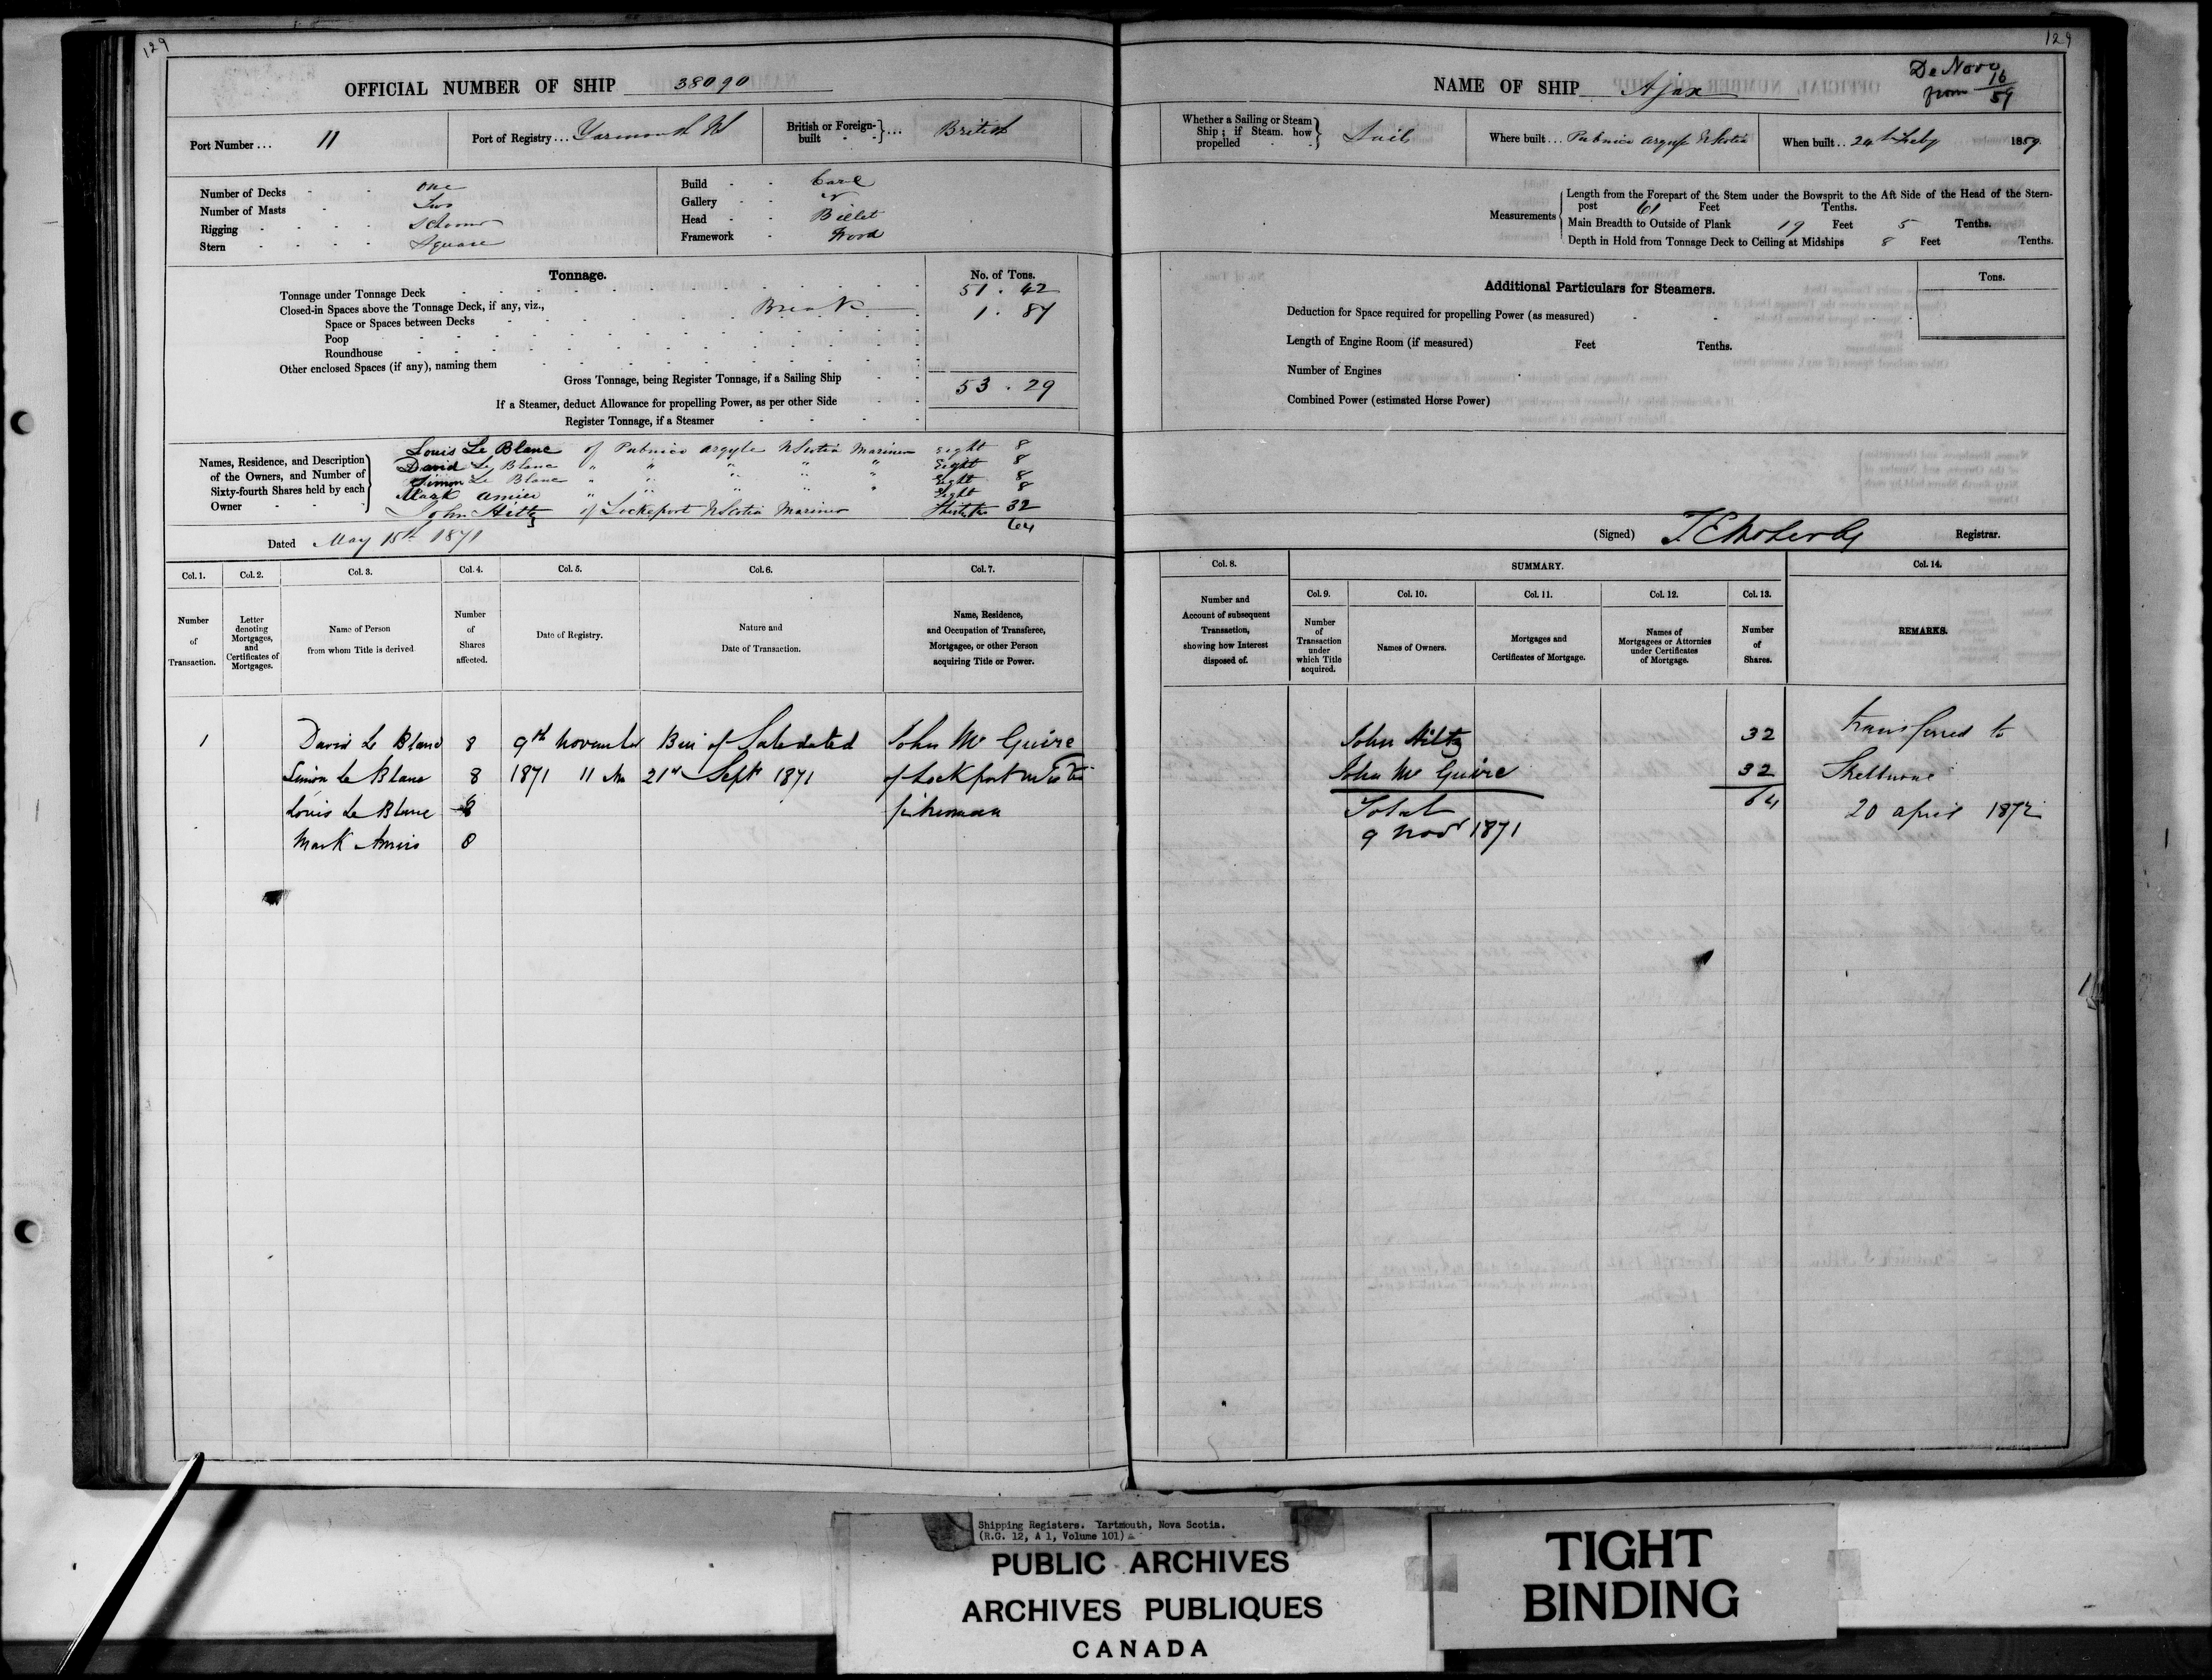 129
OFFICIAL NUMBER OF SHIP 38090
Port Number... 11
Port of Registry... Yarmouth NS
British or Foreign-built } ... British
Number of Decks - - one
Number of Masts - Two
Rigging - - - - Schooner
Stern - - - - Square
Build - - Carvel
Gallery - -
Head - - Billet
Framework - Wood
Tonnage.
No. of Tons.
Tonnage under Tonnage Deck 51 . 42
Closed-in Spaces above the Tonnage Deck, if any, viz., Break 1 . 87
Space or Spaces between Decks
Poop
Roundhouse
Other enclosed Spaces (if any), naming them
Gross Tonnage, being Register Tonnage, if a Sailing Ship 53 . 29
If a Steamer, deduct Allowance for propelling Power, as per other Side
Register Tonnage, if a Steamer
Names, Residence, and Description of the Owners, and Number of Sixty-fourth Shares held by each Owner
Louis Le Blanc of Pubnico Argyle NScotia Mariner Eight 8
David Le Blanc " " " " " Eight 8
Simon Le Blanc " " " " " Eight 8
Mark Amier " " Eight 8
John Hiltz of Lockeport NScotia Mariner 32
64
Dated May 15th 1871
Col. 1.
Col. 2.
Col. 3.
Col. 4.
Col. 5.
Col. 6.
Col. 7.
Number of Transaction.
Letter denoting Mortgages, and Certificates of Mortgages.
Name of Person from whom Title is derived
Number of Shares affected.
Date of Registry.
Nature and Date of Transaction.
Name, Residence, and Occupation of Transferee, Mortgagee, or other Person acquiring Title or Power.
1 David Le Blanc 8 9th November Bill of Sale dated John Mc Guire
Simon Le Blanc 8 1871 11 Am 21st Sept 1871 of Lockport
Louis Le Blanc 8 fisherman
Mark Amiro 8
129
De Novo from 16/59
NAME OF SHIP Ajax
Whether a Sailing or Steam Ship; if Steam, how propelled } Sails
Where built... Pubnico Argyle NScotia
When built.. 24th Feby 1859.
Measurements
Length from the Forepart of the Stem under the Bowsprit to the Aft Side of the Head of the Stern-
post 61 Feet Tenths.
Main Breadth to Outside of Plank 19 Feet 5 Tenths.
Depth in Hold from Tonnage Deck to Ceiling at Midships 8 Feet Tenths.
Additional Particulars for Steamers.
Tons.
Deduction for Space required for propelling Power (as measured)
Length of Engine Room (if measured) Feet Tenths.
Number of Engines
Combined Power (estimated Horse Power)
(Signed) Registrar.
Col. 8.
SUMMARY.
Col. 14.
Col. 9.
Col. 10.
Col. 11.
Col. 12.
Col. 13.
Number and Account of subsequent Transaction, showing how Interest disposed of.
Number of Transaction under which Title acquired.
Names of Owners.
Mortgages and Certificates of Mortgage.
Names of Mortgagees or Attornies under Certificates of Mortgage.
Number of Shares.
REMARKS.
John Hiltz 32 transferred to
John Mc Guire 32 Shelburne
Total 64 20 april 1872
9 Nov 1871
Shipping Registers. Yartmouth, Nova Scotia.
(R.G. 12, A 1, Volume 101)
PUBLIC ARCHIVES
ARCHIVES PUBLIQUES
CANADA
TIGHT
BINDING